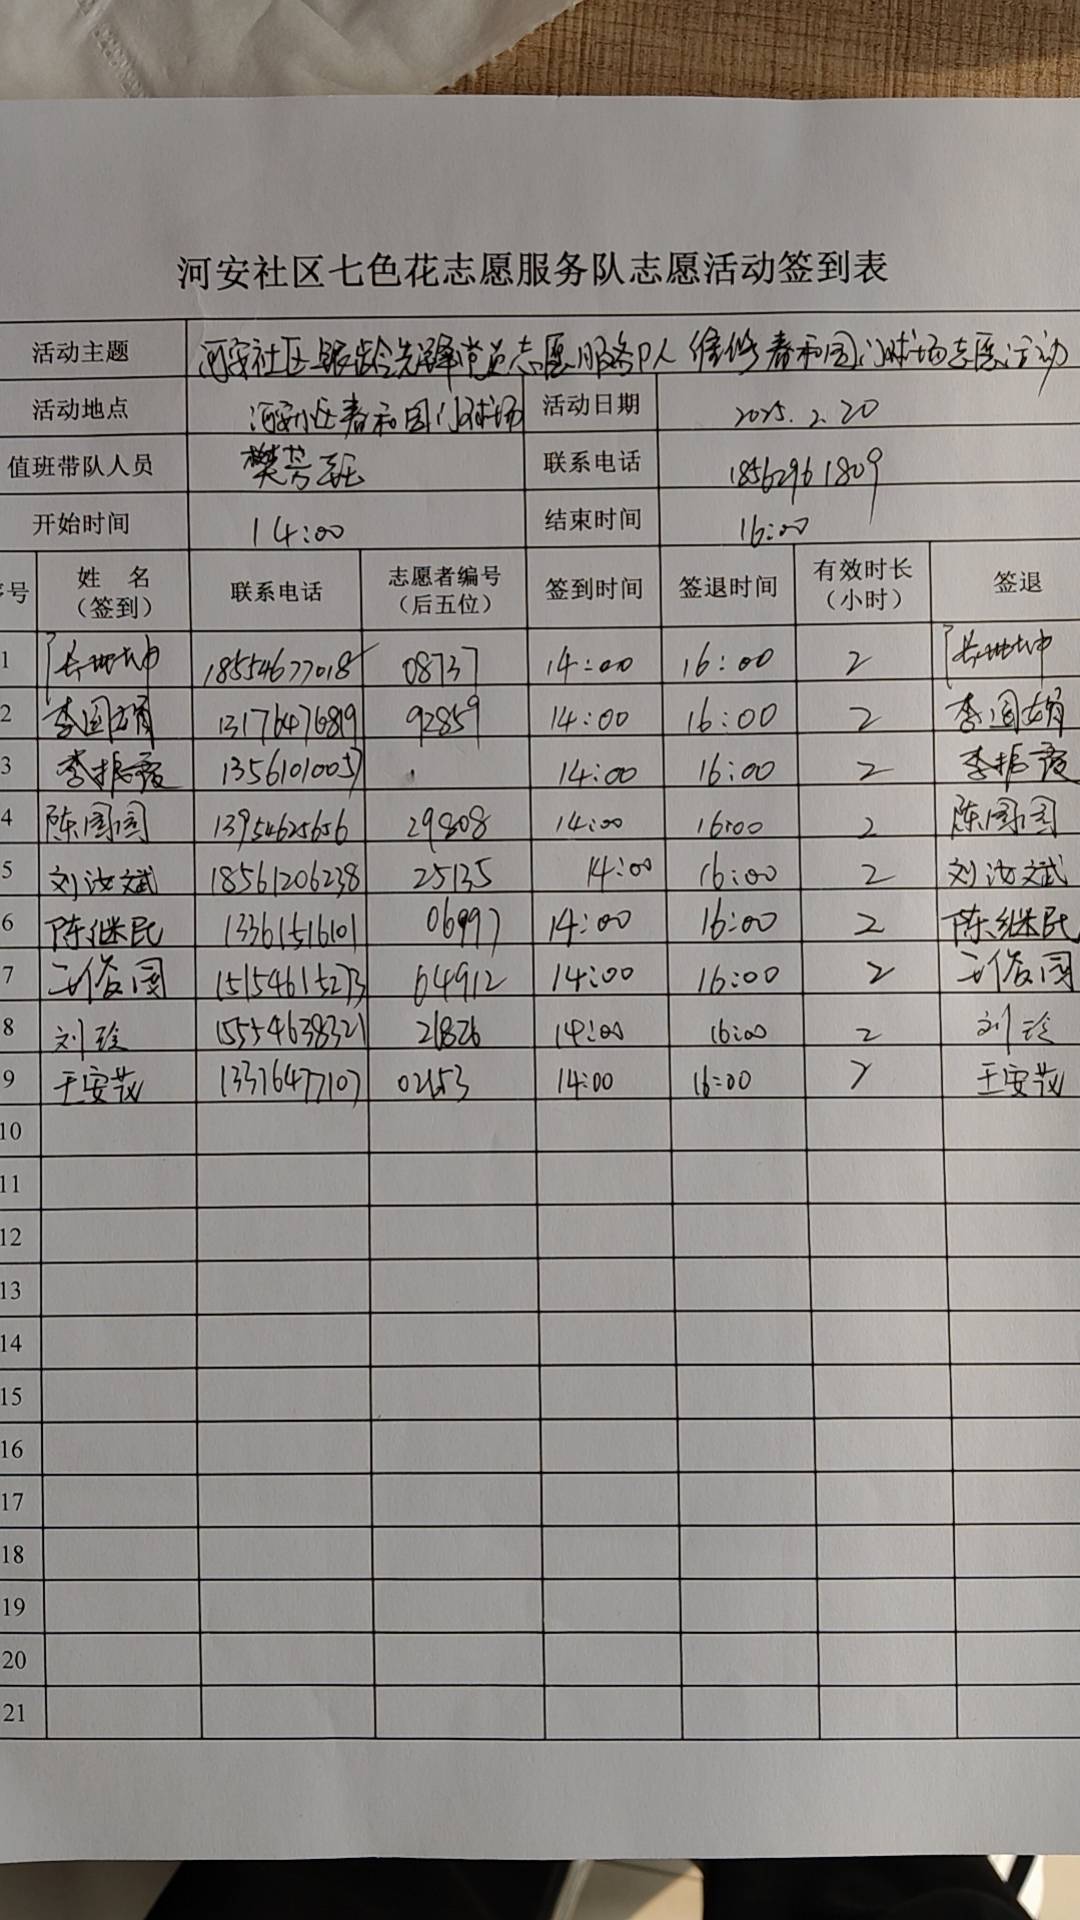 河安社区七色花志愿服务队志愿活动签到表
活动主题 河安社区银龄先锋党员志愿服务队 维修春和园门球场志愿活动
活动地点 河安小区春和园门球场 活动日期 2025.2.20
值班带队人员 樊芳 联系电话 18562961809
开始时间 14:00 结束时间 16:00
序号 姓 名（签到） 联系电话 志愿者编号（后五位） 签到时间 签退时间 有效时长（小时） 签退
1 18554677018 08737 14:00 16:00 2
2 李国娟 13176476819 92859 14:00 16:00 2 李国娟
3 李振霞 13561010057 14:00 16:00 2 李振霞
4 陈国 13954625656 29808 14:00 16:00 2 陈国
5 刘汝斌 18561206238 25135 14:00 16:00 2 刘汝斌
6 陈继民 13361516101 06997 14:00 16:00 2 陈继民
7 王俊国 15154615273 64912 14:00 16:00 2 王俊国
8 刘珍 15554638321 21826 14:00 16:00 2 刘珍
9 王安茂 13376477107 02153 14:00 16:00 2 王安茂
10
11
12
13
14
15
16
17
18
19
20
21